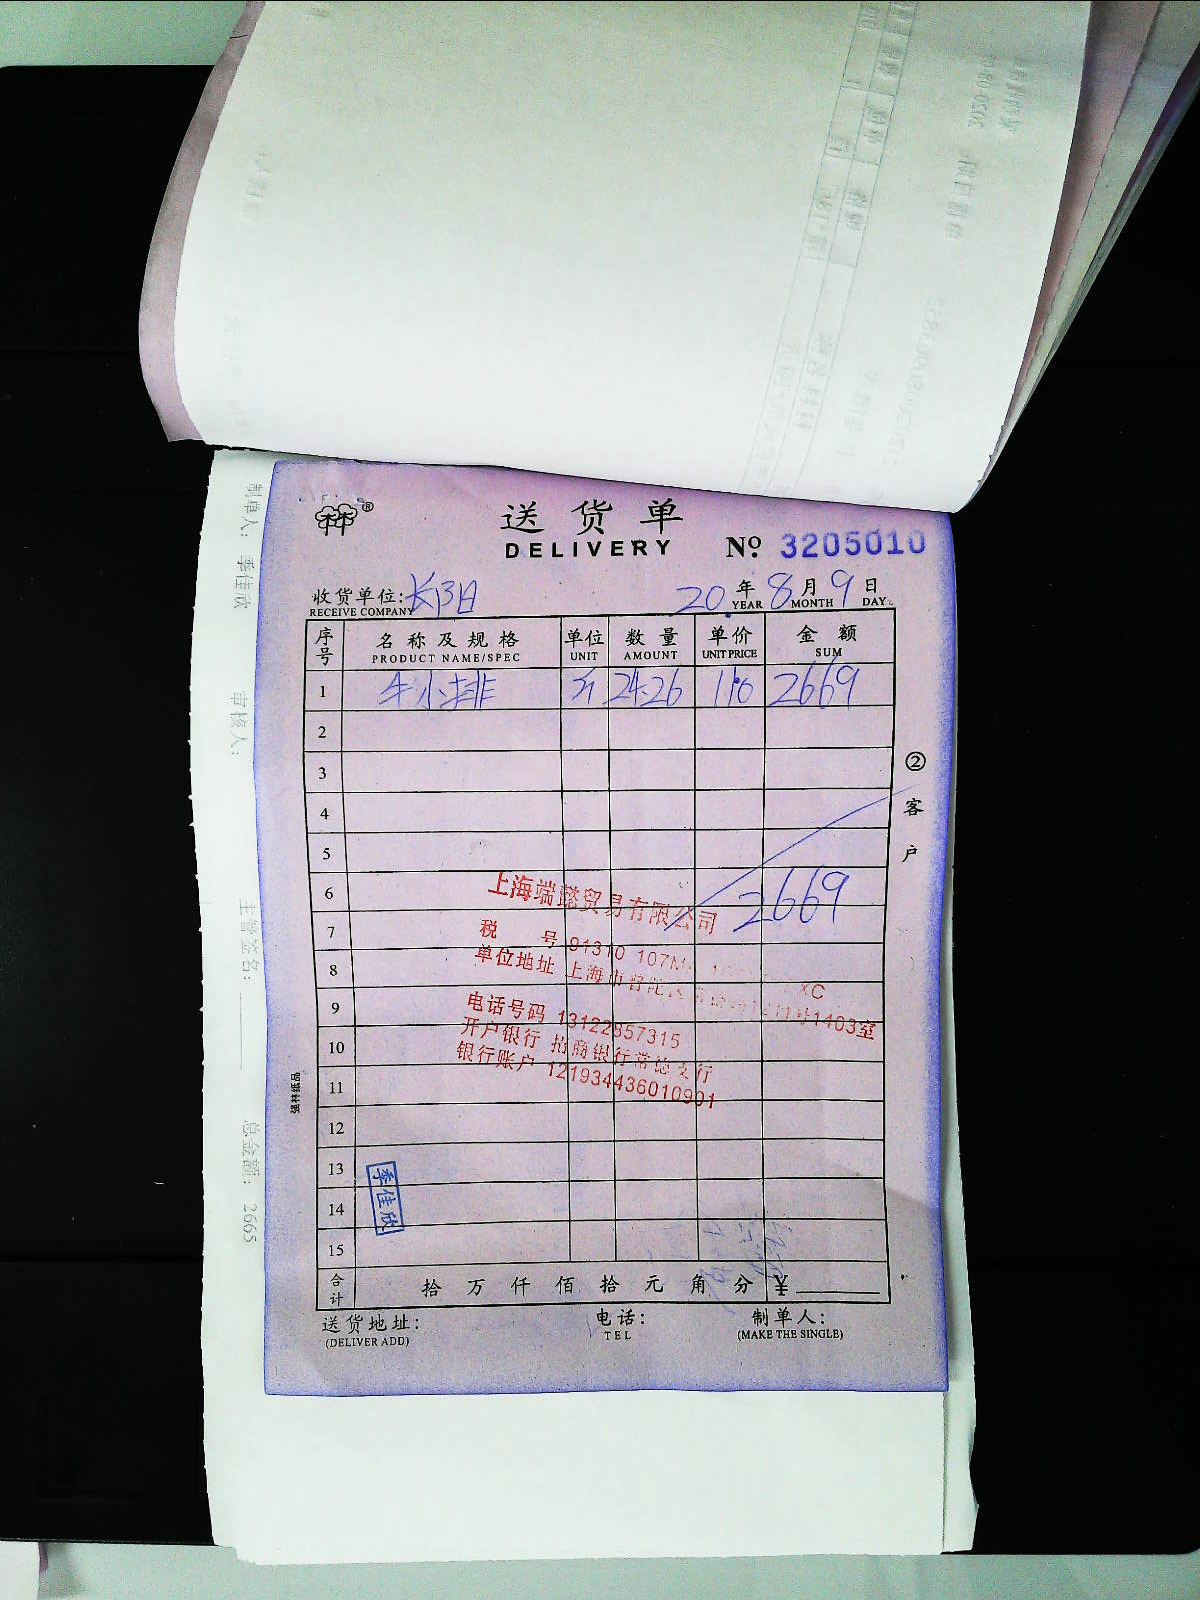 送货单
DELIVERY
№ 3205010
收货单位: 长阳 20 年 8 月 9 日
RECEIVE COMPANY YEAR MONTH DAY
序号 名称及规格 单位 数量 单价 金额
PRODUCT NAME/SPEC UNIT AMOUNT UNIT PRICE SUM
1 牛小排 斤 24.26 110 2669
2
3
4
5
6 2669
7
8
9
10
11
12
13
14
15
上海端懿贸易有限公司
税 号 91310 107M XC
单位地址 上海市普陀区 1403室
电话号码 13122357315
开户银行 招商银行常德支行
银行账户 121934436010901
季佳欣
合计 拾 万 仟 佰 拾 元 角 分 ¥
送货地址: 电话: 制单人:
(DELIVER ADD) TEL (MAKE THE SINGLE)
② 客户
强林纸品
制单人: 季佳欣 审核人: 主管签名: 总金额: 2665